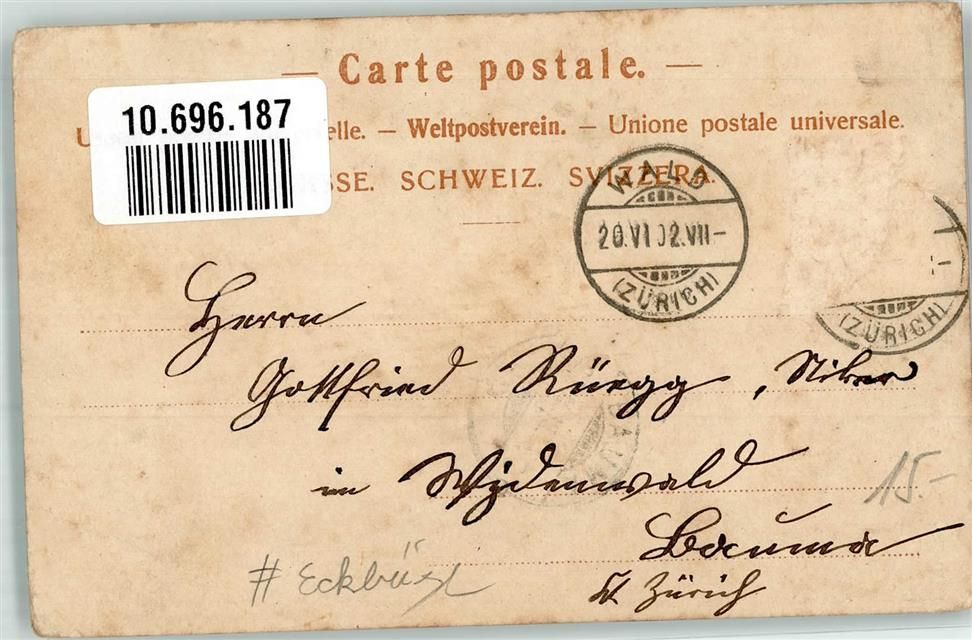 — Carte postale. —
10.696.187
U elle. — Weltpostverein. — Unione postale universale.
SSE. SCHWEIZ. SVIZZERA.
WALD
20.VI 02.VII-
(ZÜRICH)
(ZÜRICH)
Herrn
Gottfried Rüegg,
in Wydenwald
15.-
Bauma
Kt. Zürich
#